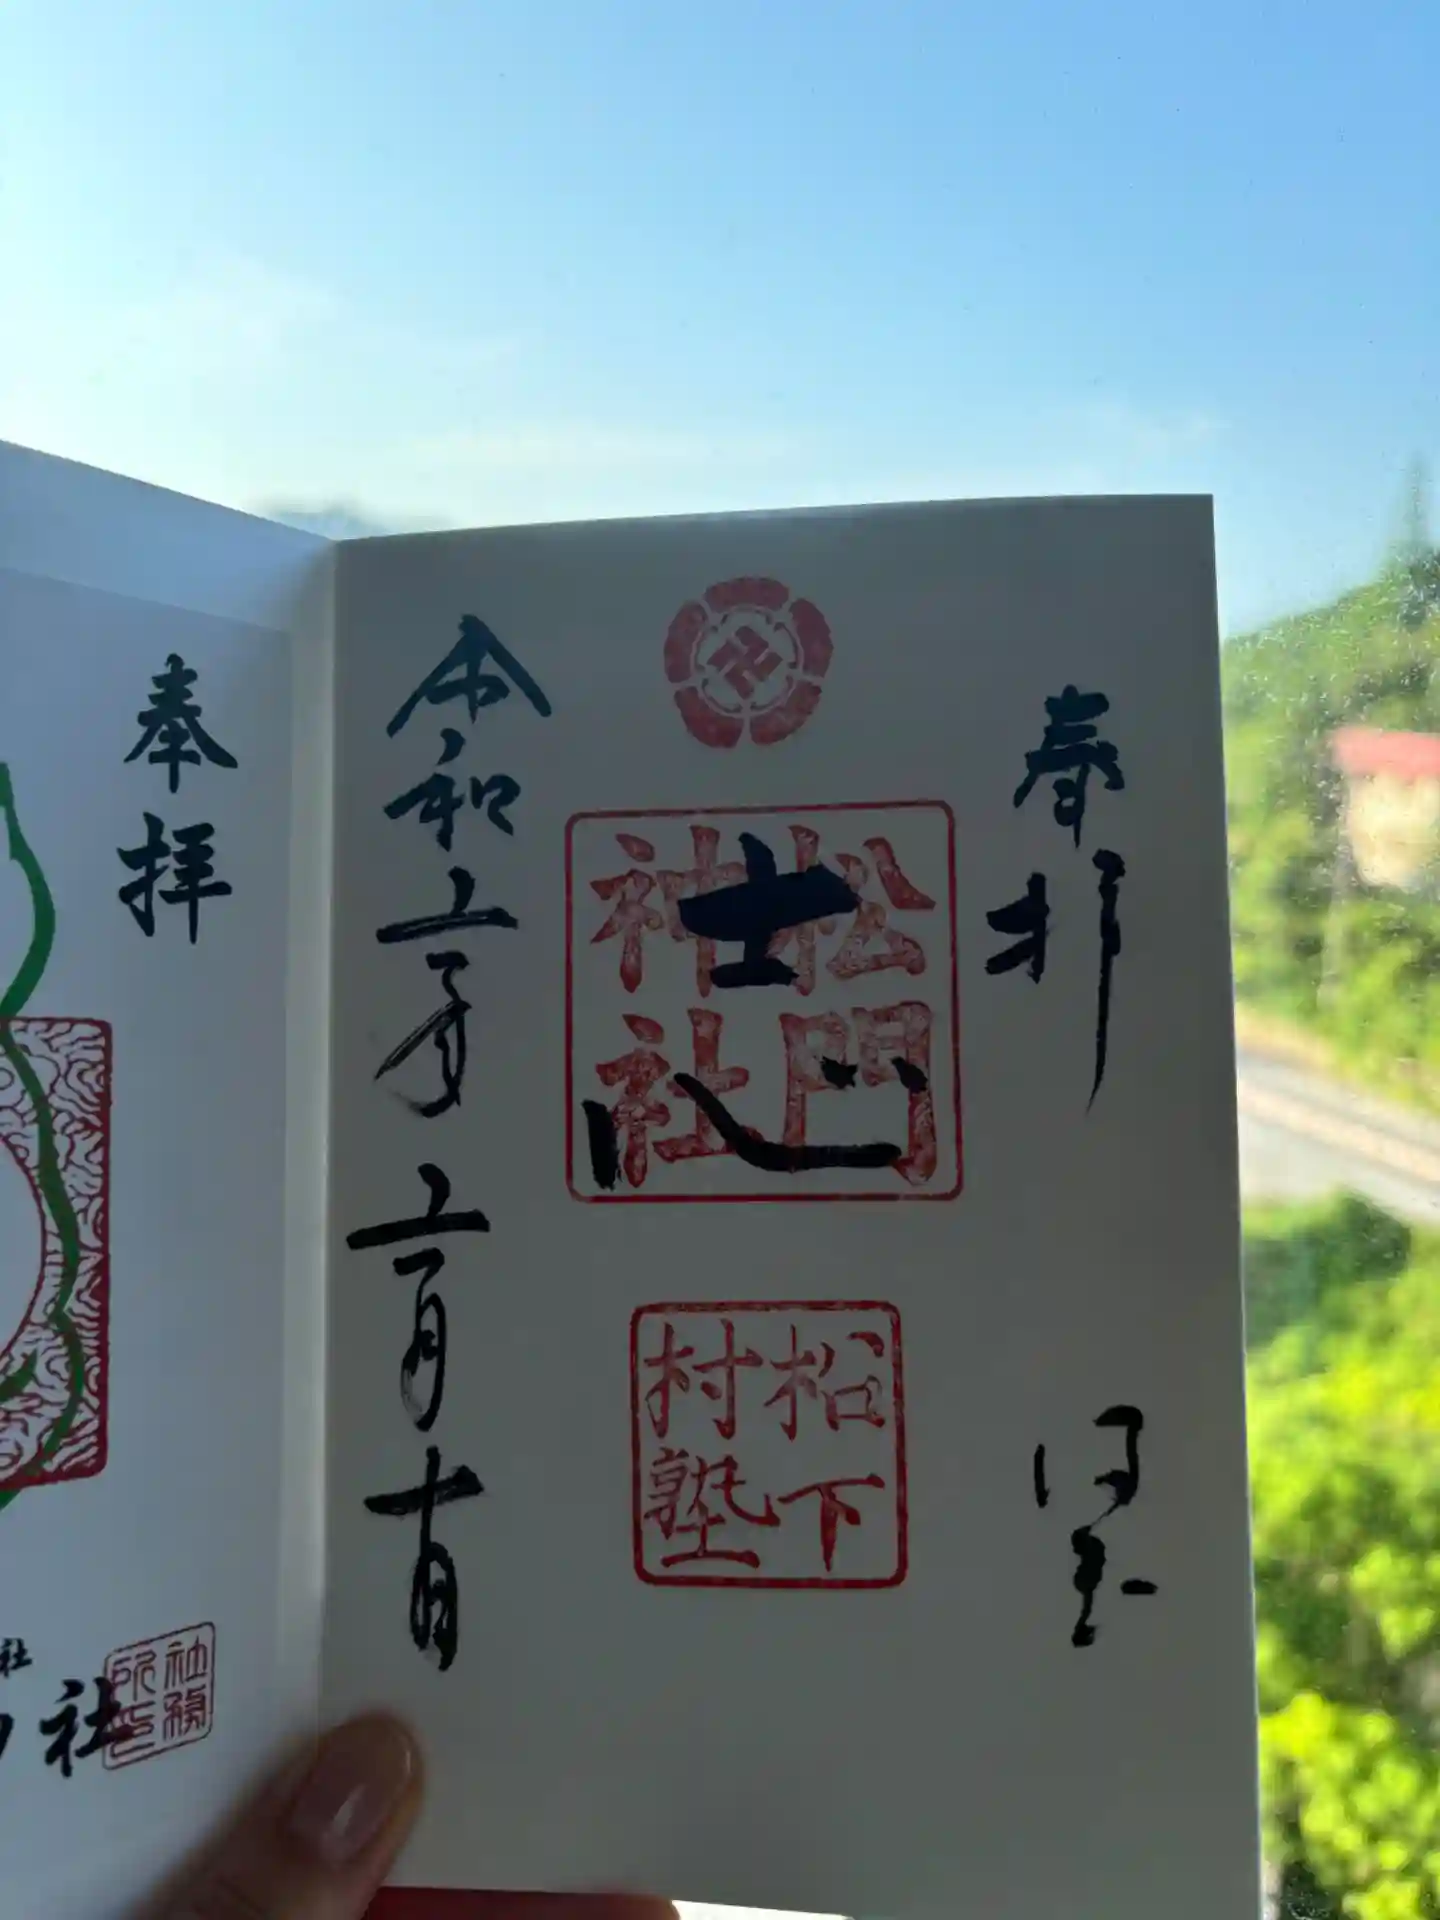 奉拝
松門神社
志
松下村塾
令和六年六月十日
奉拝
社
社
社務所印